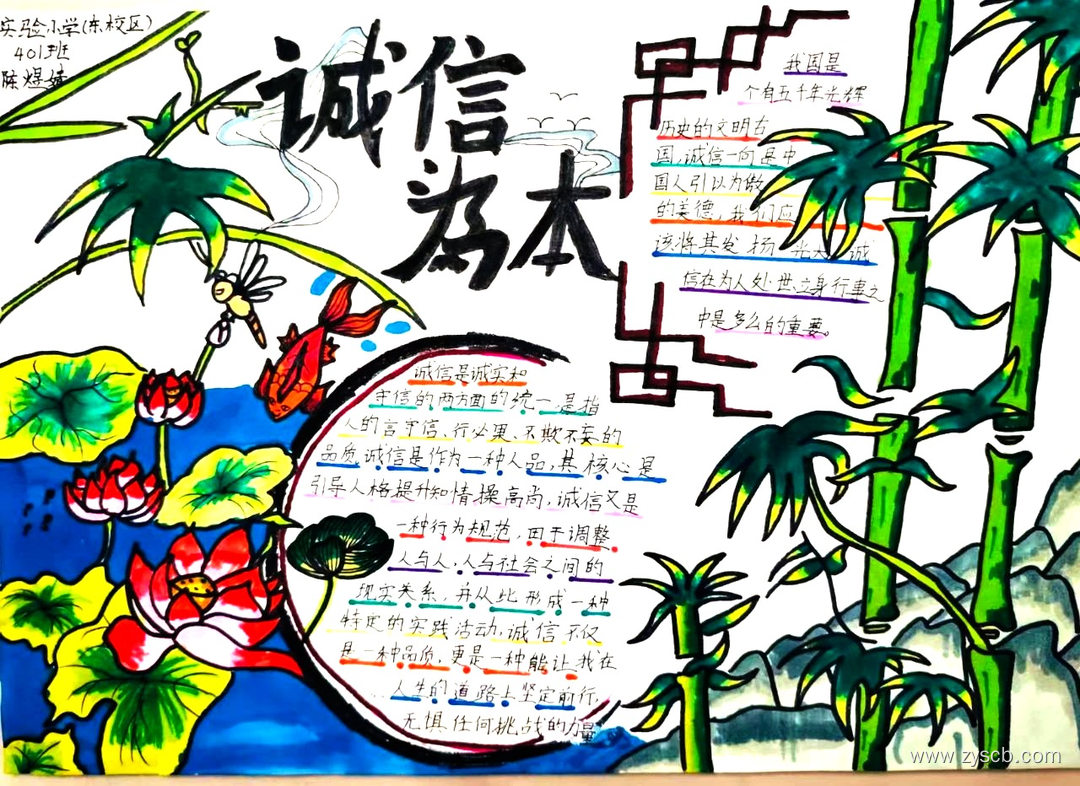 实验小学(东校区)
401班
陈煜婧
诚信
为本
我国是
个有五千年光辉
历史的文明古
国,诚信一向是中
国人引以为傲
的美德,我们应
该将其发扬光大,诚
信在为人处世、立身行事之
中是多么的重要。
诚信是诚实和
守信的两方面的统一,是指
人的言守信、行必果、不欺不妄的
品质,诚信是作为一种人品,其核心是
引导人格提升和情操高尚,诚信又是
一种行为规范,用于调整
人与人,人与社会之间的
现实关系,并从此形成一种
特定的实践活动,诚信不仅
是一种品质,更是一种能让我在
人生的道路上坚定前行,
无惧任何挑战的力量
www.zyscb.com